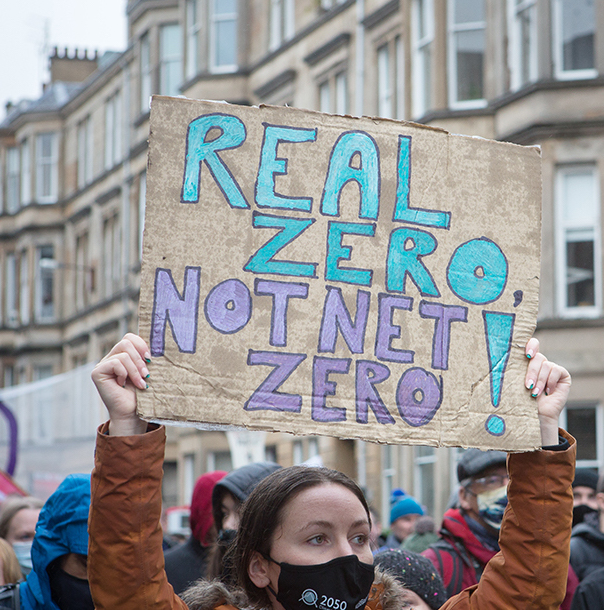 REAL
ZERO,
NOT NET
ZERO!
2050